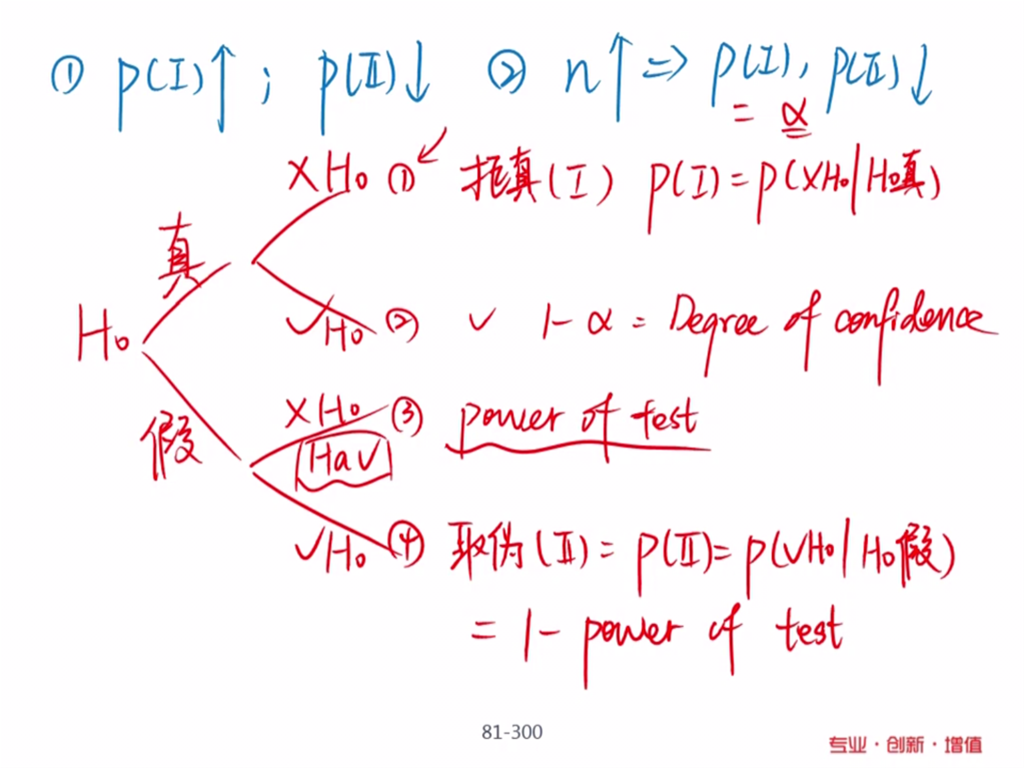 ① P(I)↑ ; P(II)↓ ② n↑ ⇒ P(I), P(II)↓
= α
×H₀ ① 拒真(I) P(I)=P(×H₀|H₀真)
真
H₀
√H₀ ② √ 1-α = Degree of confidence
假
×H₀ ③ power of test
Ha√
√H₀ ④ 取伪(II) = P(II)=P(√H₀|H₀假)
= 1- power of test
81-300
专业·创新·增值